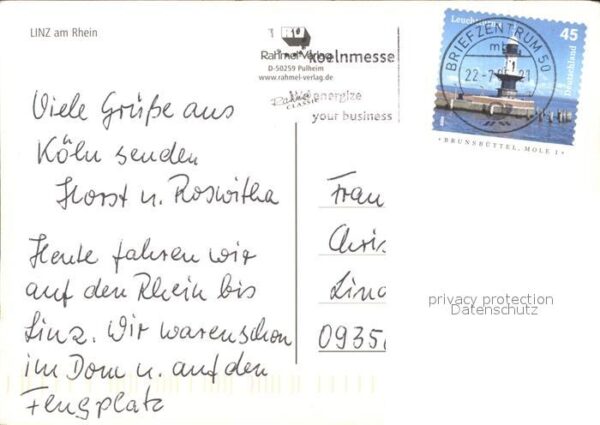 LINZ am Rhein
RV
Rahmel-Verlag
D-50259 Pulheim
www.rahmel-verlag.de
Rahmel
CLASSIC
koelnmesse
We energize
your business
Leuchttürme
45
Deutschland
BRIEFZENTRUM 50
BRUNSBÜTTEL, MOLE 1
Viele Grüße aus
Köln senden
Horst u. Roswitha
Heute fahren wir
auf den Rhein bis
Linz. Wir waren schon
im Dom u. auf den
Flugplatz
Frau
Chris
Lind
0935
privacy protection
Datenschutz